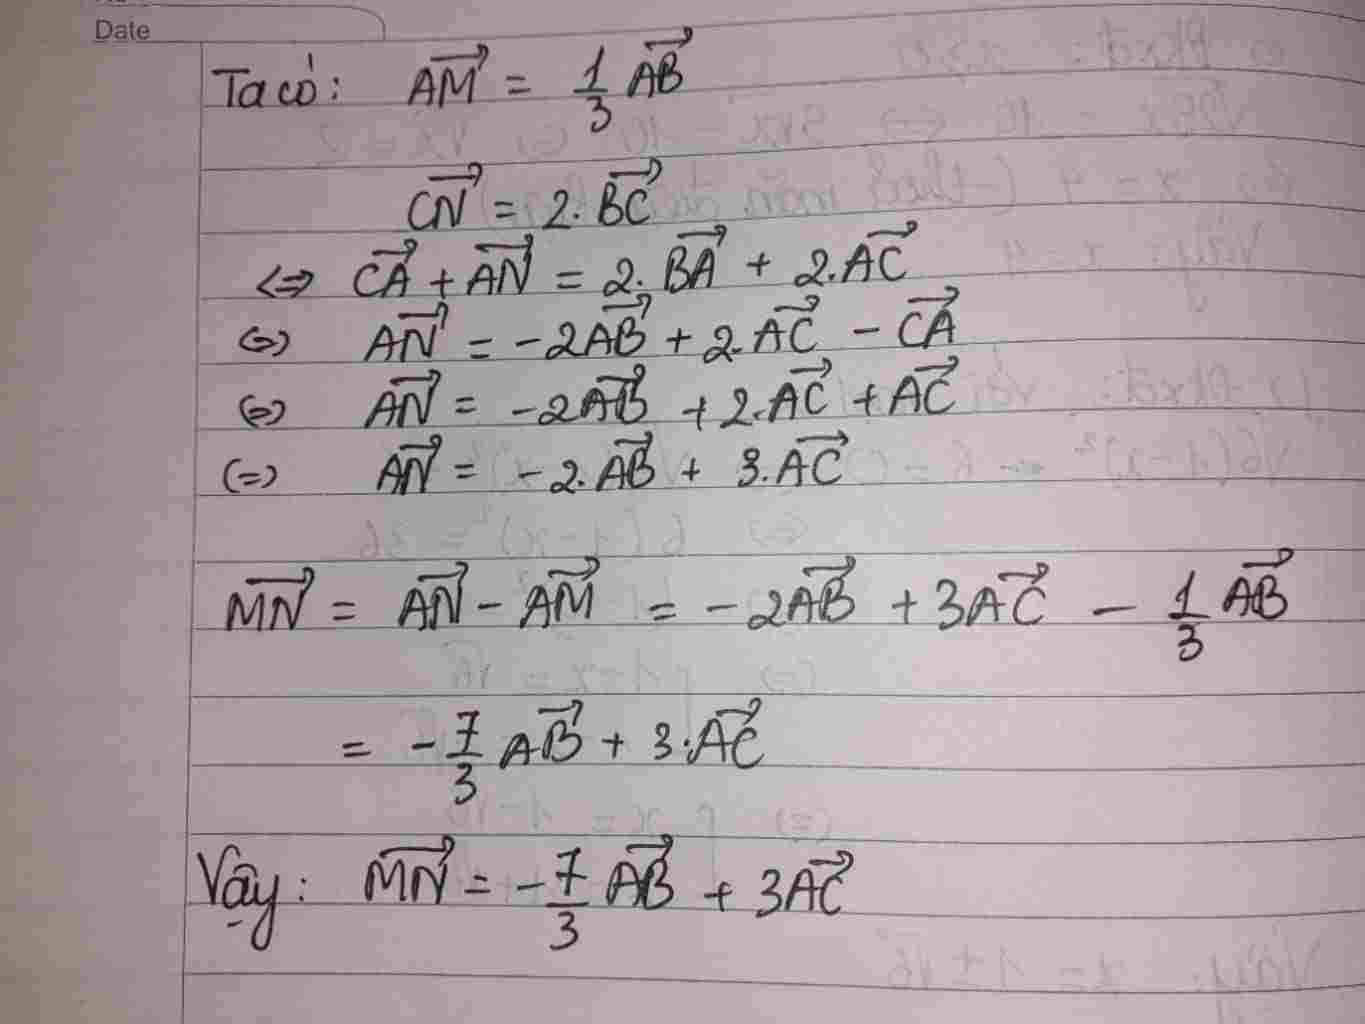 Date
Ta có: $\overrightarrow{AM} = \frac{1}{3} \overrightarrow{AB}$
$\overrightarrow{CN} = 2. \overrightarrow{BC}$
$\Leftrightarrow \overrightarrow{CA} + \overrightarrow{AN} = 2. \overrightarrow{BA} + 2. \overrightarrow{AC}$
$\Leftrightarrow \overrightarrow{AN} = -2\overrightarrow{AB} + 2. \overrightarrow{AC} - \overrightarrow{CA}$
$\Leftrightarrow \overrightarrow{AN} = -2\overrightarrow{AB} + 2. \overrightarrow{AC} + \overrightarrow{AC}$
$(=) \overrightarrow{AN} = -2. \overrightarrow{AB} + 3. \overrightarrow{AC}$
$\overrightarrow{MN} = \overrightarrow{AN} - \overrightarrow{AM} = -2\overrightarrow{AB} + 3\overrightarrow{AC} - \frac{1}{3} \overrightarrow{AB}$
$= -\frac{7}{3} \overrightarrow{AB} + 3. \overrightarrow{AC}$
Vậy: $\overrightarrow{MN} = -\frac{7}{3} \overrightarrow{AB} + 3\overrightarrow{AC}$